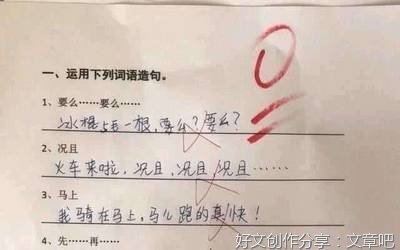 0
一、运用下列词语造句。
1、要么……要么……
冰棍5毛一根,要么?要么?
2、况且
火车来啦,况且,况且,况且……
3、马上
我骑在马上,马儿跑的真快!
4、先……再……
好文创作分享:文章吧